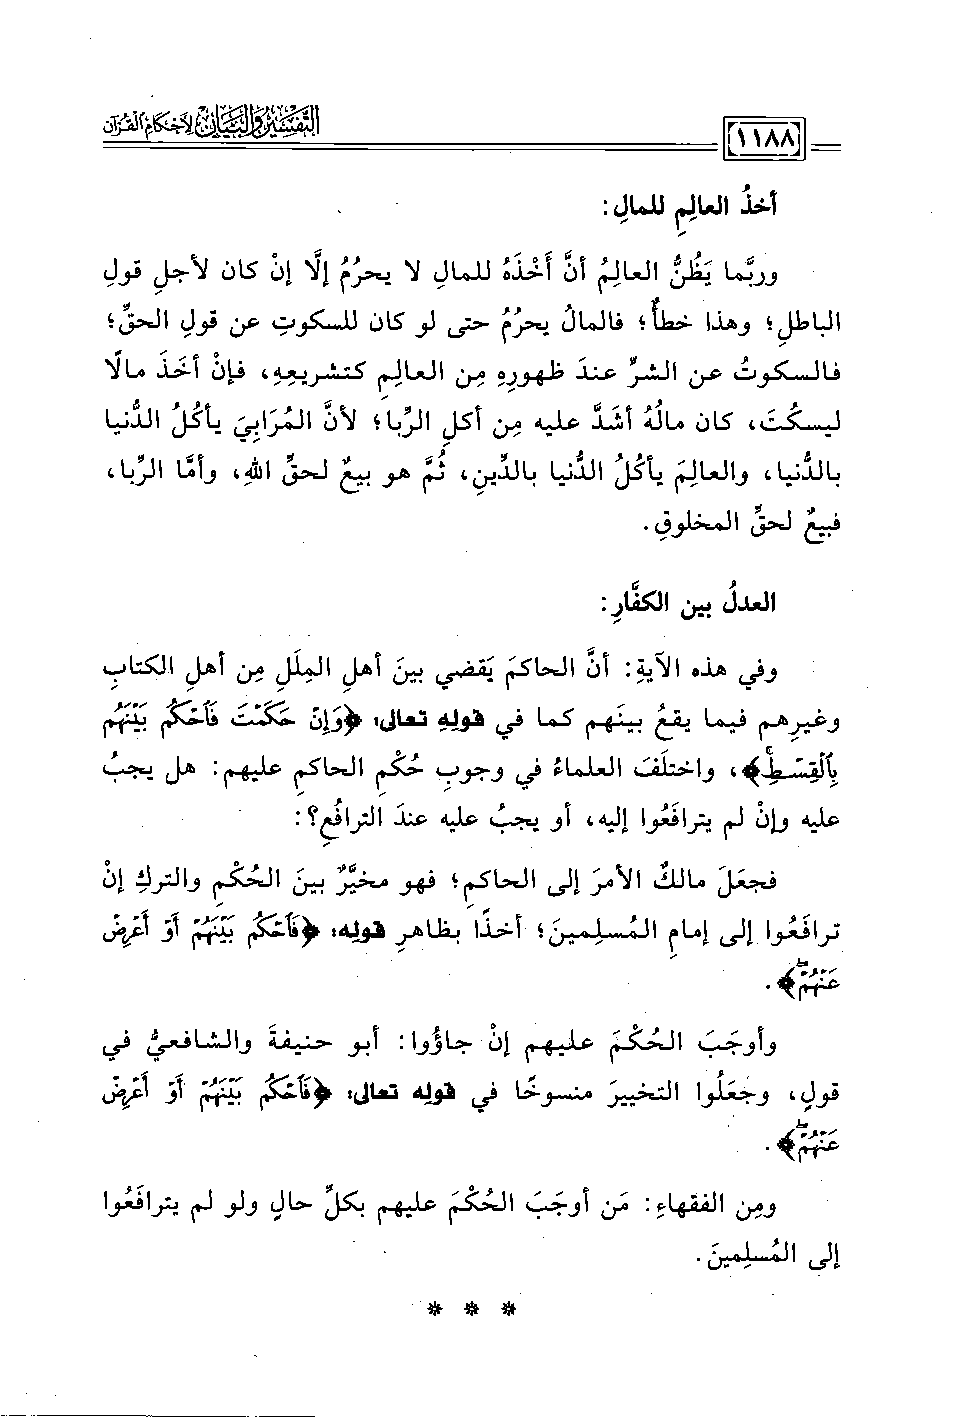 التفسير والبيان لأحكام القرآن
١١٨٨
أخذُ العالِمِ للمالِ:
وربَّما يَظُنُّ العالِمُ أنَّ أَخْذَهُ للمالِ لا يحرُمُ إلَّا إنْ كان لأجلِ قولِ
الباطلِ؛ وهذا خطأٌ؛ فالمالُ يحرُمُ حتى لو كان للسكوتِ عن قولِ الحقِّ؛
فالسكوتُ عن الشرِّ عندَ ظهورِهِ مِن العالِمِ كتشريعِهِ، فإنْ أخَذَ مالًا
ليسكُتَ، كان مالُهُ أشَدَّ عليه مِن أكلِ الرِّبا؛ لأنَّ المُرَابِيَ يأكُلُ الدُّنيا
بالدُّنيا، والعالِمَ يأكُلُ الدُّنيا بالدِّينِ، ثُمَّ هو بيعٌ لحقِّ اللهِ، وأمَّا الرِّبا،
فبيعٌ لحقِّ المخلوقِ.
العدلُ بين الكفَّارِ:
وفي هذه الآيةِ: أنَّ الحاكمَ يَقضي بينَ أهلِ المِلَلِ مِن أهلِ الكتابِ
وغيرِهم فيما يقعُ بينَهم كما في قولِهِ تعالى: ﴿وَإِنْ حَكَمْتَ فَٱحْكُم بَيْنَهُم
بِٱلْقِسْطِۚ﴾، واختلَفَ العلماءُ في وجوبِ حُكْمِ الحاكمِ عليهم: هل يجبُ
عليه وإنْ لم يترافَعُوا إليه، أو يجبُ عليه عندَ الترافُعِ؟:
فجعَلَ مالكٌ الأمرَ إلى الحاكمِ؛ فهو مخيَّرٌ بينَ الحُكْمِ والتركِ إنْ
ترافَعُوا إلى إمامِ المُسلِمينَ؛ أخذًا بظاهرِ قولِه: ﴿فَٱحْكُم بَيْنَهُمْ أَوْ أَعْرِضْ
عَنْهُمْۖ﴾.
وأوجَبَ الحُكْمَ عليهم إنْ جاؤوا: أبو حنيفةَ والشافعيُّ في
قولٍ، وجعَلُوا التخييرَ منسوخًا في قولِه تعالى: ﴿فَٱحْكُم بَيْنَهُمْ أَوْ أَعْرِضْ
عَنْهُمْۖ﴾.
ومِن الفقهاءِ: مَن أوجَبَ الحُكْمَ عليهم بكلِّ حالٍ ولو لم يترافَعُوا
إلى المُسلِمينَ.
* * *